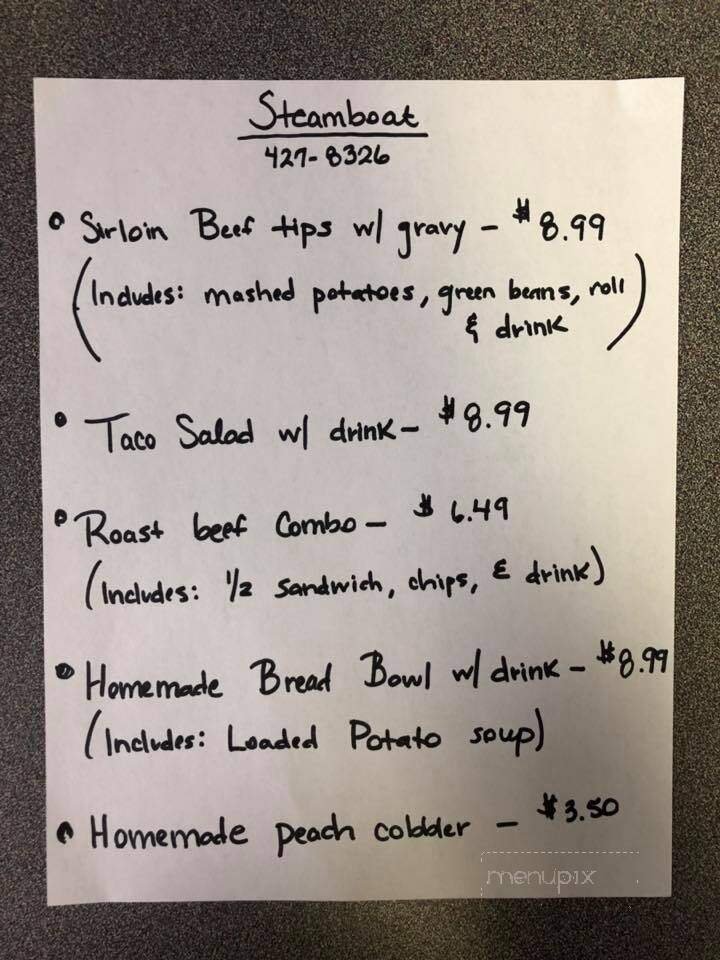 Steamboat
427-8326
• Sirloin Beef tips w/ gravy - $8.99
(Includes: mashed potatoes, green beans, roll
& drink)
• Taco Salad w/ drink - $8.99
• Roast beef Combo - $6.49
(Includes: 1/2 sandwich, chips, & drink)
• Homemade Bread Bowl w/ drink - $8.99
(Includes: Loaded Potato soup)
• Homemade peach cobbler - $3.50
menupix